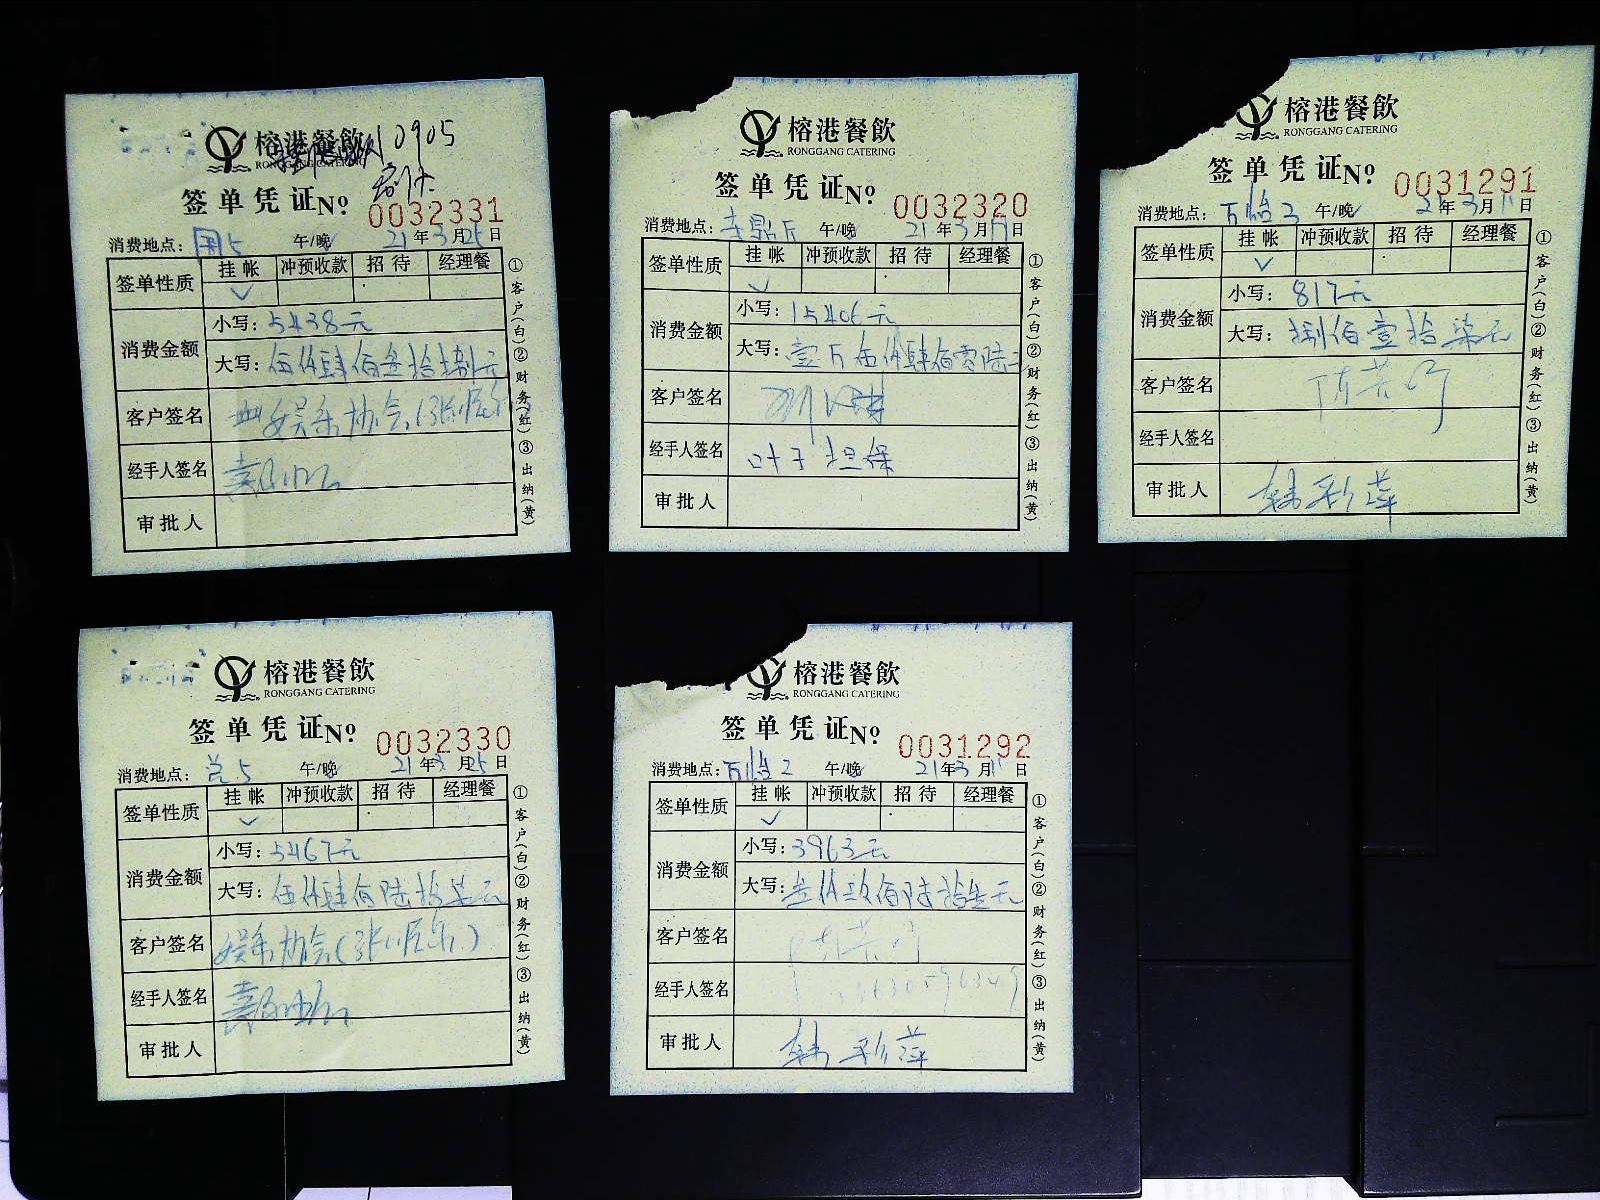 榕港餐飲
RONGGANG CATERING
10905
签单凭证No. 0032331
消费地点: 5 午/晚 21年3月25日
签单性质 挂帐 冲预收款 招待 经理餐
✓
消费金额 小写: 5438元
大写: 伍仟肆佰叁拾捌元
客户签名 娱乐协会
经手人签名
审批人
①客户(白)②财务(红)③出纳(黄)
榕港餐飲
RONGGANG CATERING
签单凭证No. 0032320
消费地点: 午/晚 21年3月17日
签单性质 挂帐 冲预收款 招待 经理餐
✓
消费金额 小写: 15406元
大写: 壹万伍仟肆佰零陆元
客户签名
经手人签名 叶子担保
审批人
①客户(白)②财务(红)③出纳(黄)
榕港餐飲
RONGGANG CATERING
签单凭证No. 0031291
消费地点: 万怡3 午/晚 21年3月11日
签单性质 挂帐 冲预收款 招待 经理餐
✓
消费金额 小写: 817元
大写: 捌佰壹拾柒元
客户签名
经手人签名
审批人 韩彩萍
①客户(白)②财务(红)③出纳(黄)
榕港餐飲
RONGGANG CATERING
签单凭证No. 0032330
消费地点: 5 午/晚 21年3月25日
签单性质 挂帐 冲预收款 招待 经理餐
✓
消费金额 小写: 5467元
大写: 伍仟肆佰陆拾柒元
客户签名 娱乐协会
经手人签名
审批人
①客户(白)②财务(红)③出纳(黄)
榕港餐飲
RONGGANG CATERING
签单凭证No. 0031292
消费地点: 万怡2 午/晚 21年3月11日
签单性质 挂帐 冲预收款 招待 经理餐
✓
消费金额 小写: 3963元
大写: 叁仟玖佰陆拾叁元
客户签名
经手人签名
审批人 韩彩萍
①客户(白)②财务(红)③出纳(黄)